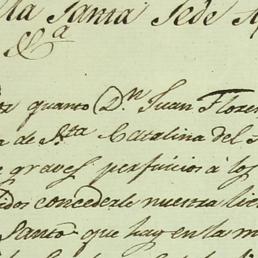 la Santa Sede A
&.a
or quanto D.n Juan Floren
a de S.ta Catalina del
e graves perjuicios à los
idos concederle nuestra lic
Santo que hay en la m